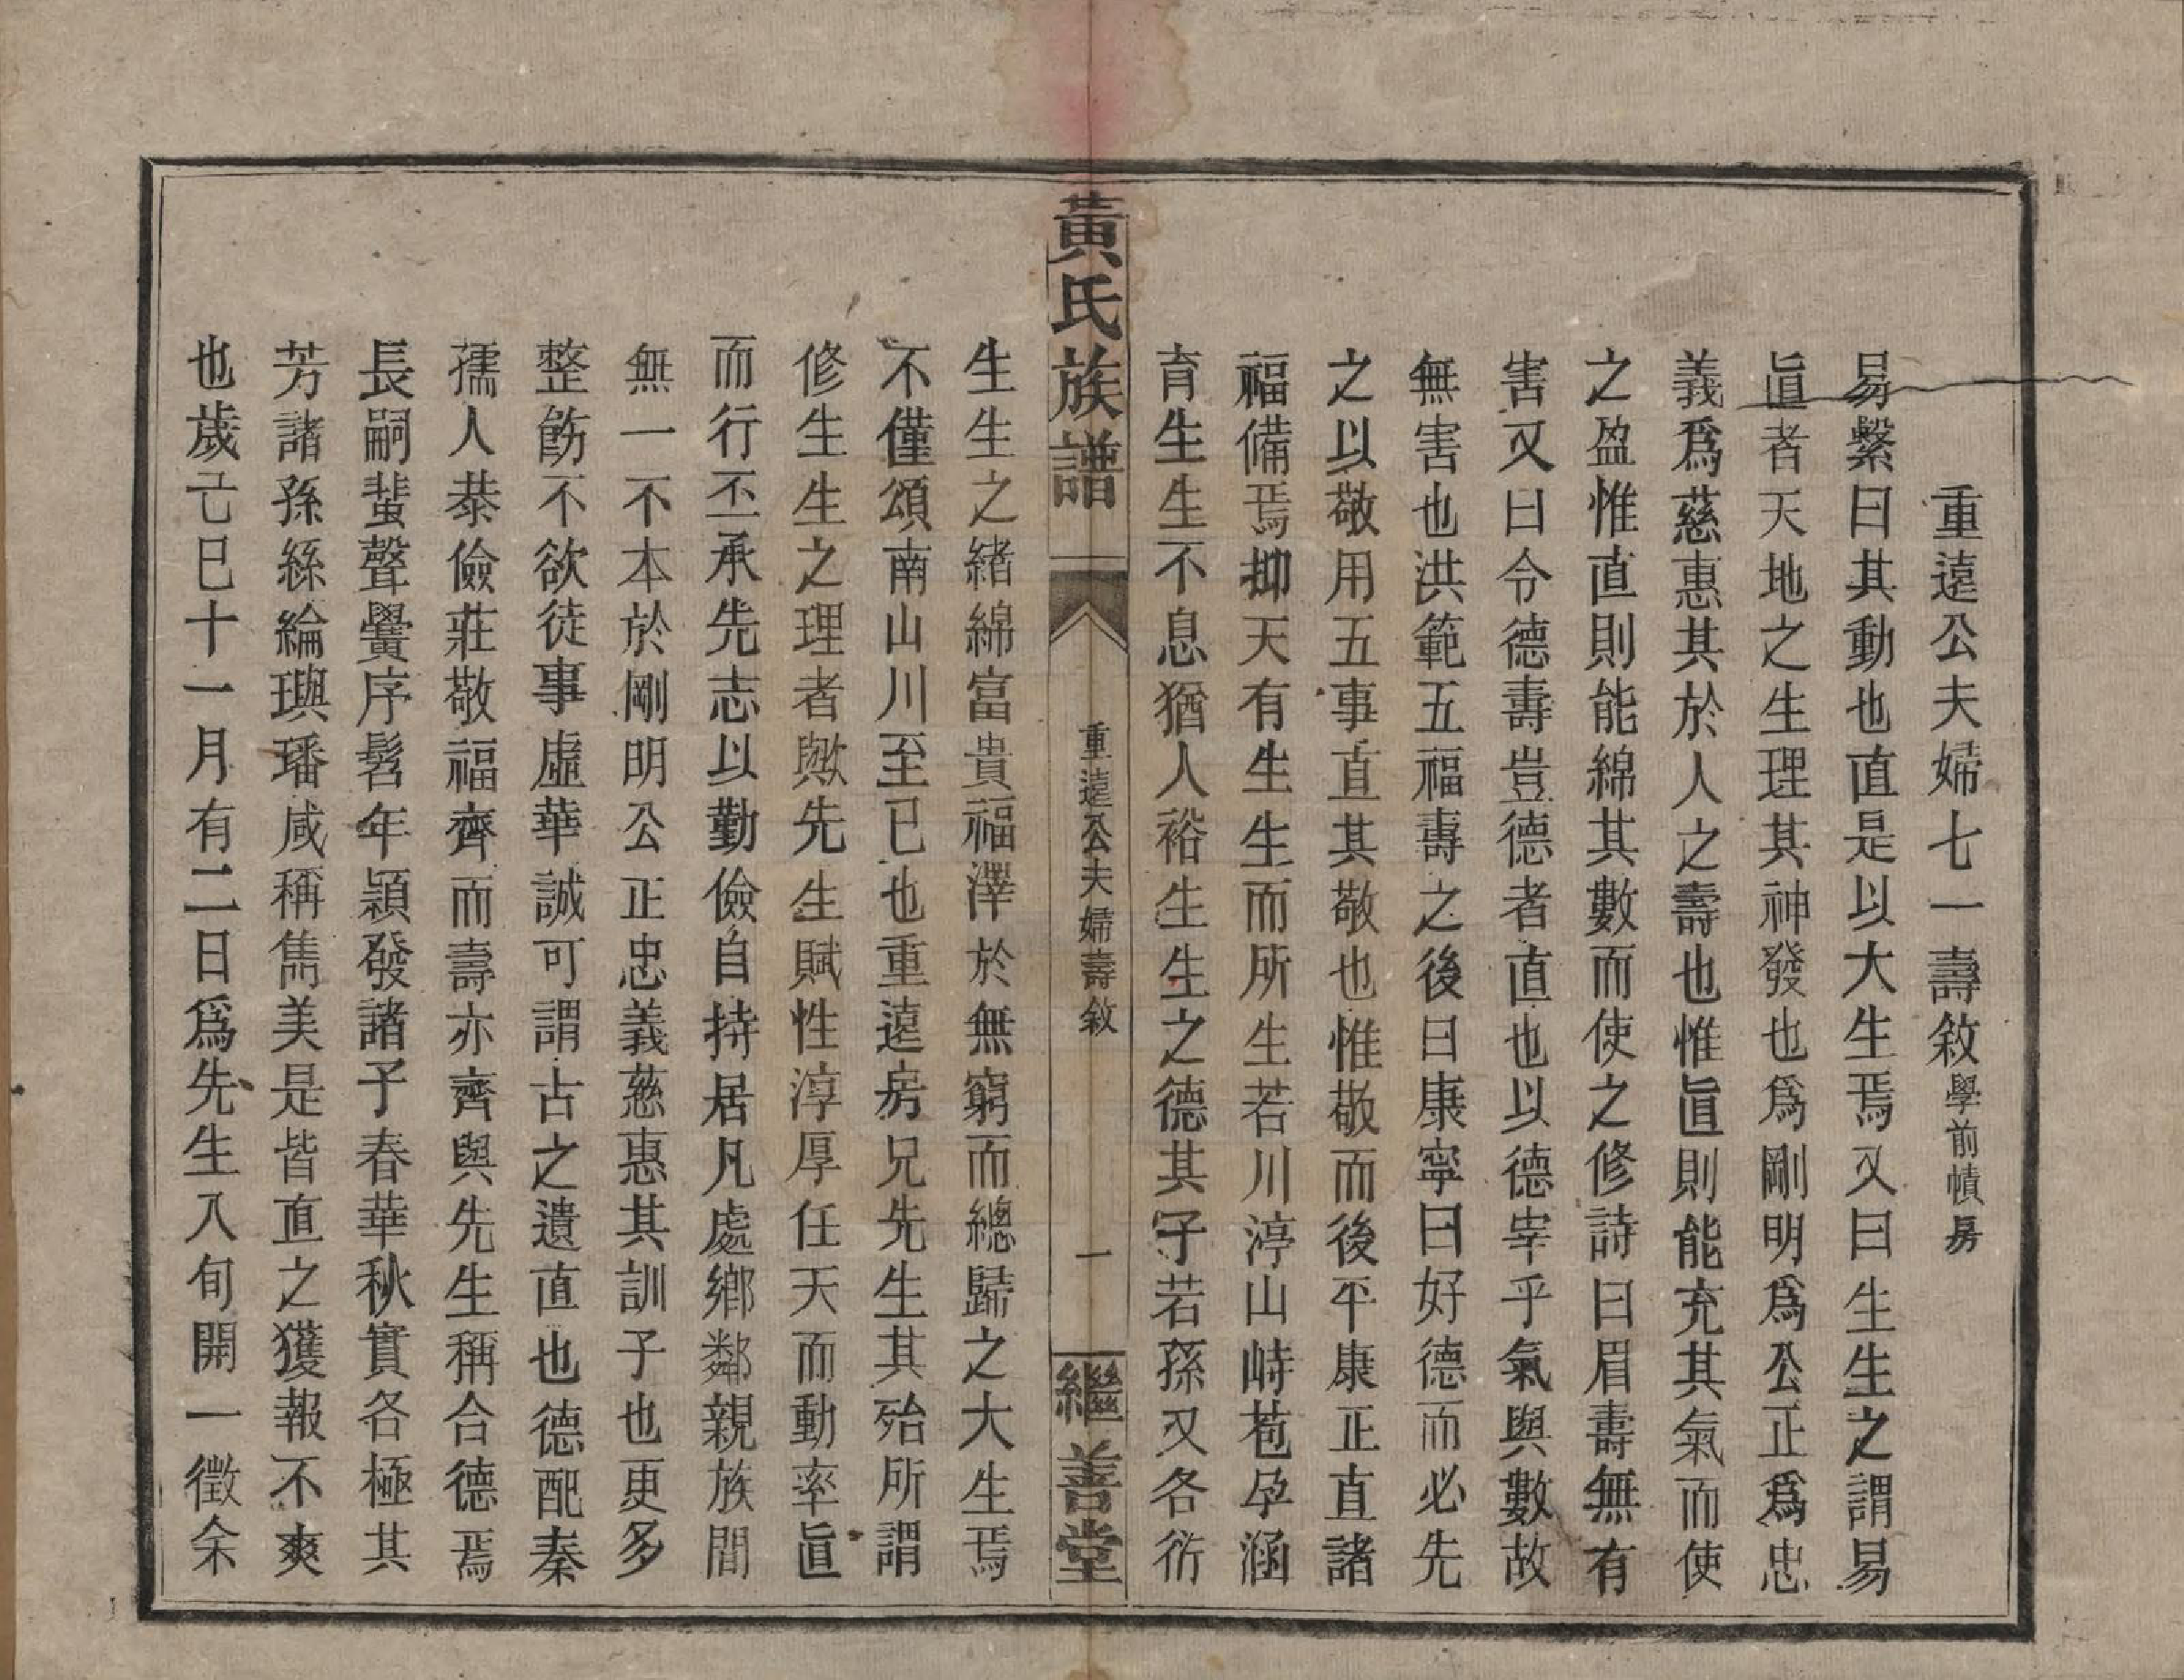 重遠公夫婦七一壽敘學前幘房
易繫曰其動也直是以大生焉又曰生生之謂易
直者天地之生理其神發也爲剛明爲公正爲忠
義爲慈惠其於人之壽也惟直則能充其氣而使
之盈惟直則能綿其數而使之修詩曰眉壽無有
害又曰令德壽豈德者直也以德宰乎氣與數故
無害也洪範五福壽之後曰康寧曰好德而必先
之以敬用五事直其敬也惟敬而後平康正直諸
福備焉抑天有生生而所生若川渟山峙苞孕涵
育生生不息猶人裕生生之德其子若孫又各衍
黃氏族譜
重遠公夫婦壽敘
一
繼善堂
生生之緒綿富貴福澤於無窮而總歸之大生焉
不僅頌南山川至已也重遠房兄先生其殆所謂
修生生之理者歟先生賦性淳厚任天而動率直
而行丕承先志以勤儉自持居凡處鄉鄰親族間
無一不本於剛明公正忠義慈惠其訓子也更多
整飭不欲徒事虛華誠可謂古之遺直也德配秦
孺人恭儉莊敬福齊而壽亦齊與先生稱合德焉
長嗣蜚聲黌序髫年穎發諸予春華秋實各極其
芳諸孫絲綸璵璠咸稱雋美是皆直之獲報不爽
也歲乙巳十一月有二日爲先生八旬開一徵余